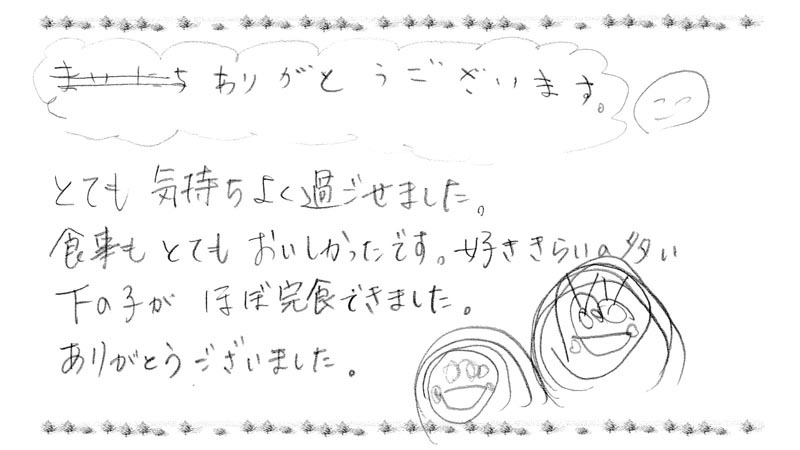 ありがとうございます。
とても 気持ちよく過ごせました。
食事も とても おいしかったです。好ききらいの多い
下の子が ほぼ完食できました。
ありがとうございました。